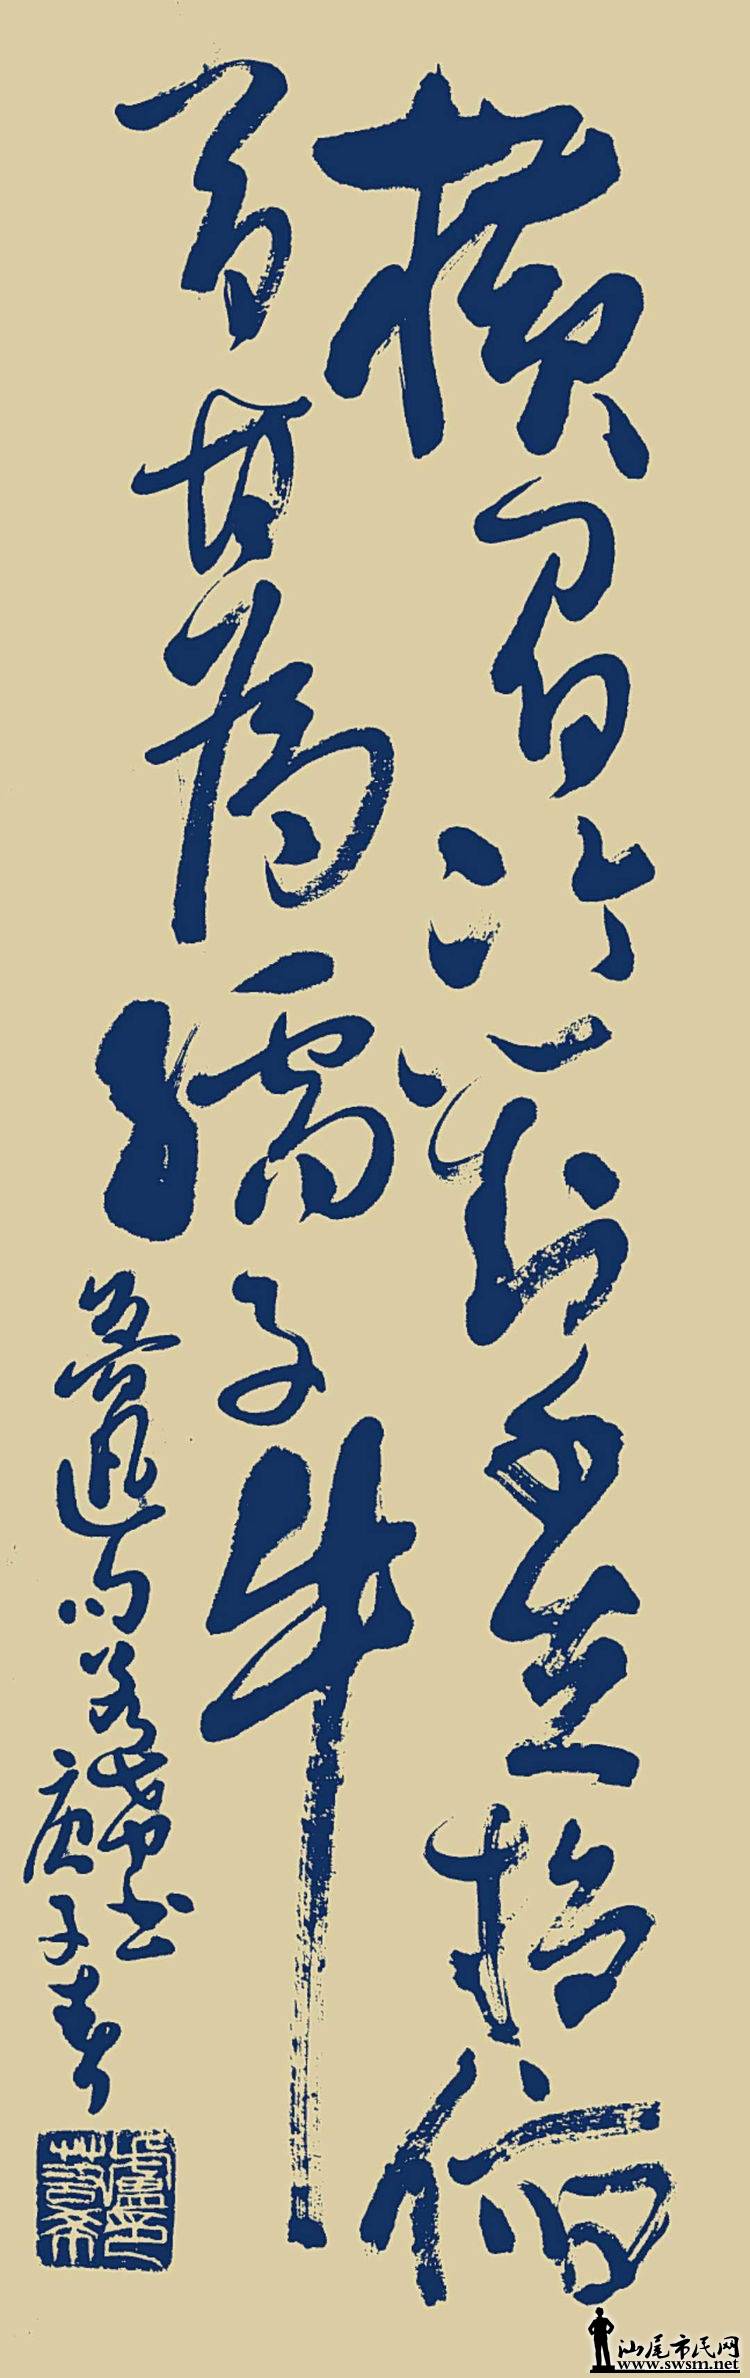 橫眉冷對千夫指俯
首甘為孺子牛
魯迅句
希书
庚子春
汕尾市民网
www.swsm.net